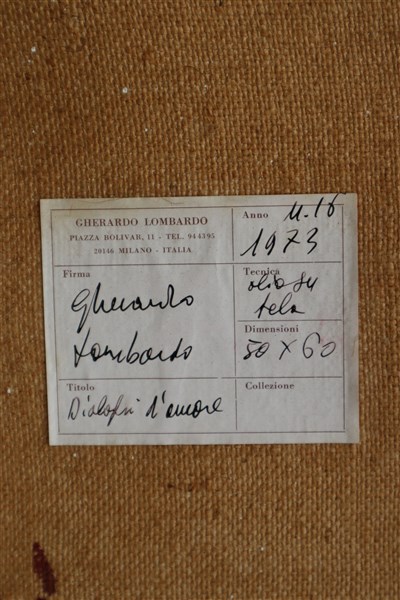 GHERARDO LOMBARDO
PIAZZA BOLIVAR, 11 - TEL. 944195
20146 MILANO - ITALIA
Anno
1973
Firma
Gherardo
Lombardo
Tecnica
olio su
tela
Dimensioni
50 X 60
Titolo
Dialoghi d'amore
Collezione